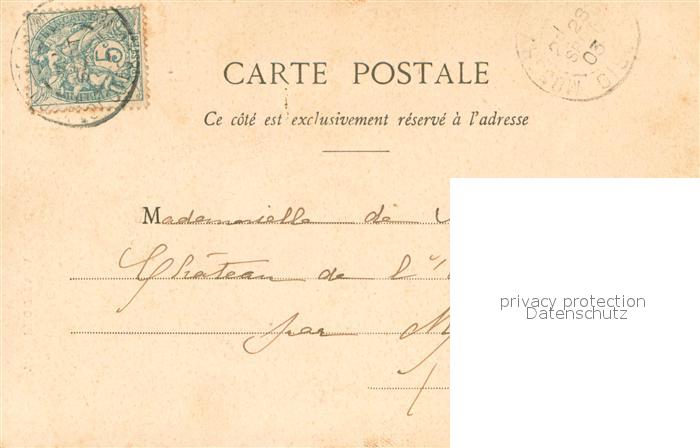 5
23
03
CARTE POSTALE
Ce côté est exclusivement réservé à l'adresse
Mademoiselle de
Château de l'
par
privacy protection
Datenschutz